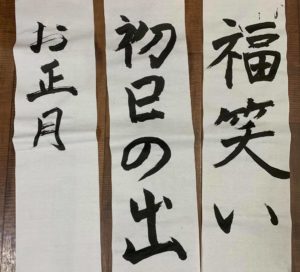 福笑い
初日の出
お正月